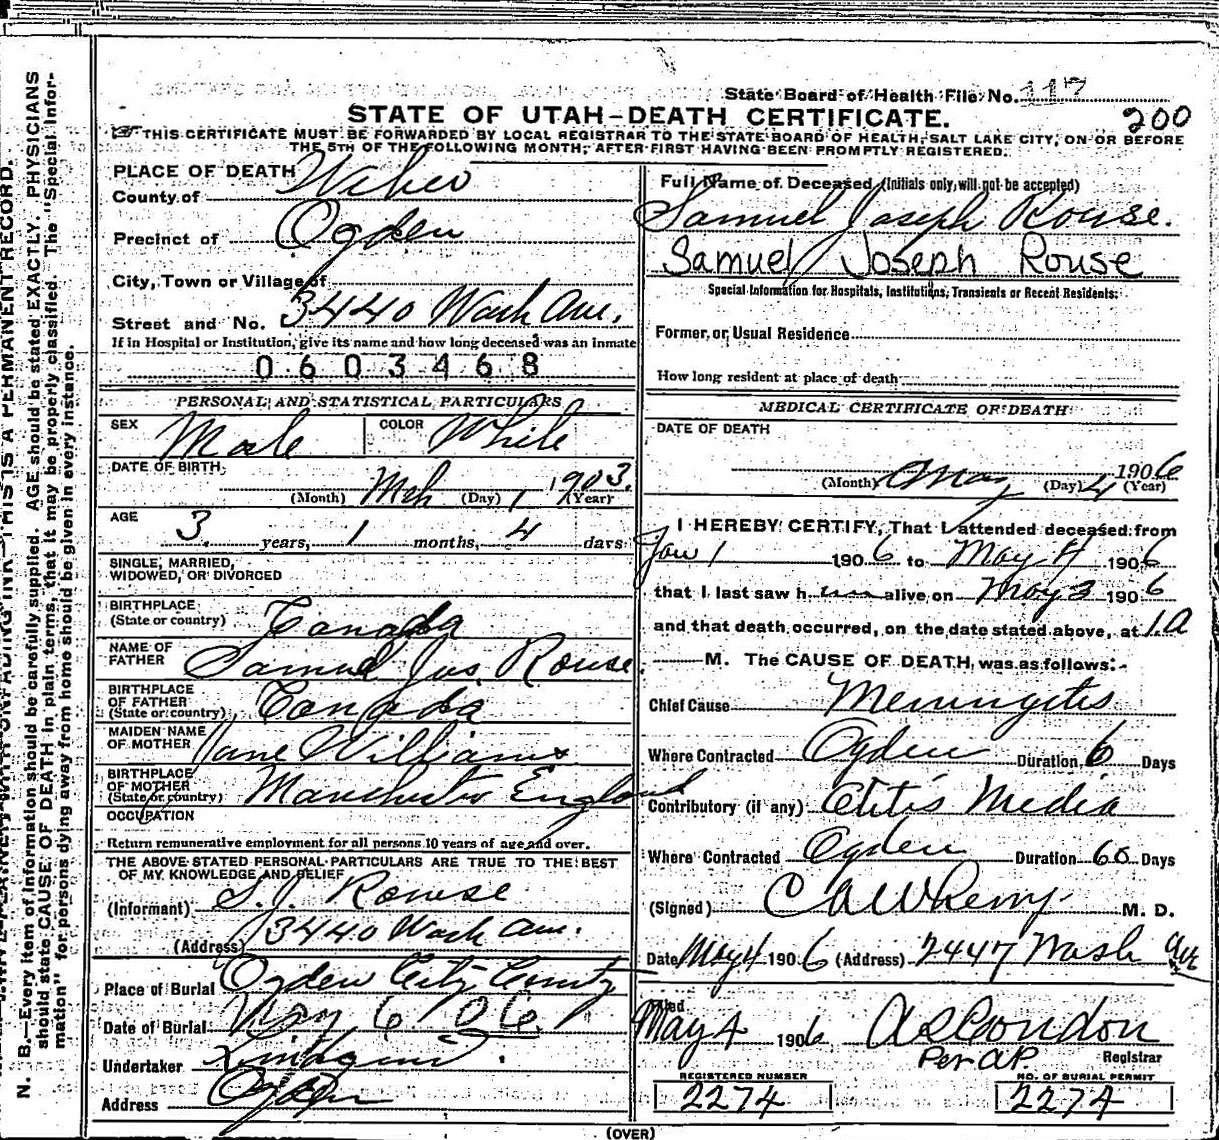 State Board of Health File No. 117
STATE OF UTAH-DEATH CERTIFICATE.
200
THIS CERTIFICATE MUST BE FORWARDED BY LOCAL REGISTRAR TO THE STATE BOARD OF HEALTH, SALT LAKE CITY, ON OR BEFORE
THE 5TH OF THE FOLLOWING MONTH, AFTER FIRST HAVING BEEN PROMPTLY REGISTERED.
PLACE OF DEATH
County of Weber
Precinct of Ogden
City, Town or Village of
Street and No. 3440 Wash Ave.
If in Hospital or Institution, give its name and how long deceased was an inmate
0603468
PERSONAL AND STATISTICAL PARTICULARS
SEX Male COLOR White
DATE OF BIRTH
(Month) Mch (Day) 1 1903. (Year)
AGE
3. years, 1 months, 4 days
SINGLE, MARRIED,
WIDOWED, OR DIVORCED
BIRTHPLACE
(State or country) Canada
NAME OF
FATHER Samuel Jos. Rouse.
BIRTHPLACE
OF FATHER
(State or country) Canada
MAIDEN NAME
OF MOTHER Jane Williams
BIRTHPLACE
OF MOTHER
(State or country) Manchester England
OCCUPATION
Return remunerative employment for all persons 10 years of age and over.
THE ABOVE STATED PERSONAL PARTICULARS ARE TRUE TO THE BEST
OF MY KNOWLEDGE AND BELIEF
(Informant) S. J. Rouse
(Address) 3440 Wash Ave.
Place of Burial Ogden City
Date of Burial May 6. 06.
Undertaker
Address Ogden
Full Name of Deceased (Initials only will not be accepted)
Samuel Joseph Rouse.
Samuel Joseph Rouse
Special Information for Hospitals, Institutions, Transients or Recent Residents:
Former or Usual Residence
How long resident at place of death
MEDICAL CERTIFICATE OF DEATH
DATE OF DEATH
(Month) May (Day) 4 1906 (Year)
I HEREBY CERTIFY, That I attended deceased from
Jan 1 1906 to May 4 1906
that I last saw h im alive on May 3 1906
and that death occurred, on the date stated above, at 1. a
M. The CAUSE OF DEATH was as follows:-
Chief Cause Meningitis
Where Contracted Ogden Duration 6 Days
Contributory (if any) Otitis Media
Where Contracted Ogden Duration 60 Days
(Signed) M. D.
Date May 4 1906 (Address) 2447 Wash Ave
Filed
May 4 1906
Per A.P. Registrar
REGISTERED NUMBER
2274
NO. OF BURIAL PERMIT
2274
(OVER)
N. B.—Every item of information should be carefully supplied. AGE should be stated EXACTLY. PHYSICIANS
should state CAUSE OF DEATH in plain terms, that it may be properly classified. The "Special Infor-
mation" for persons dying away from home should be given in every instance.